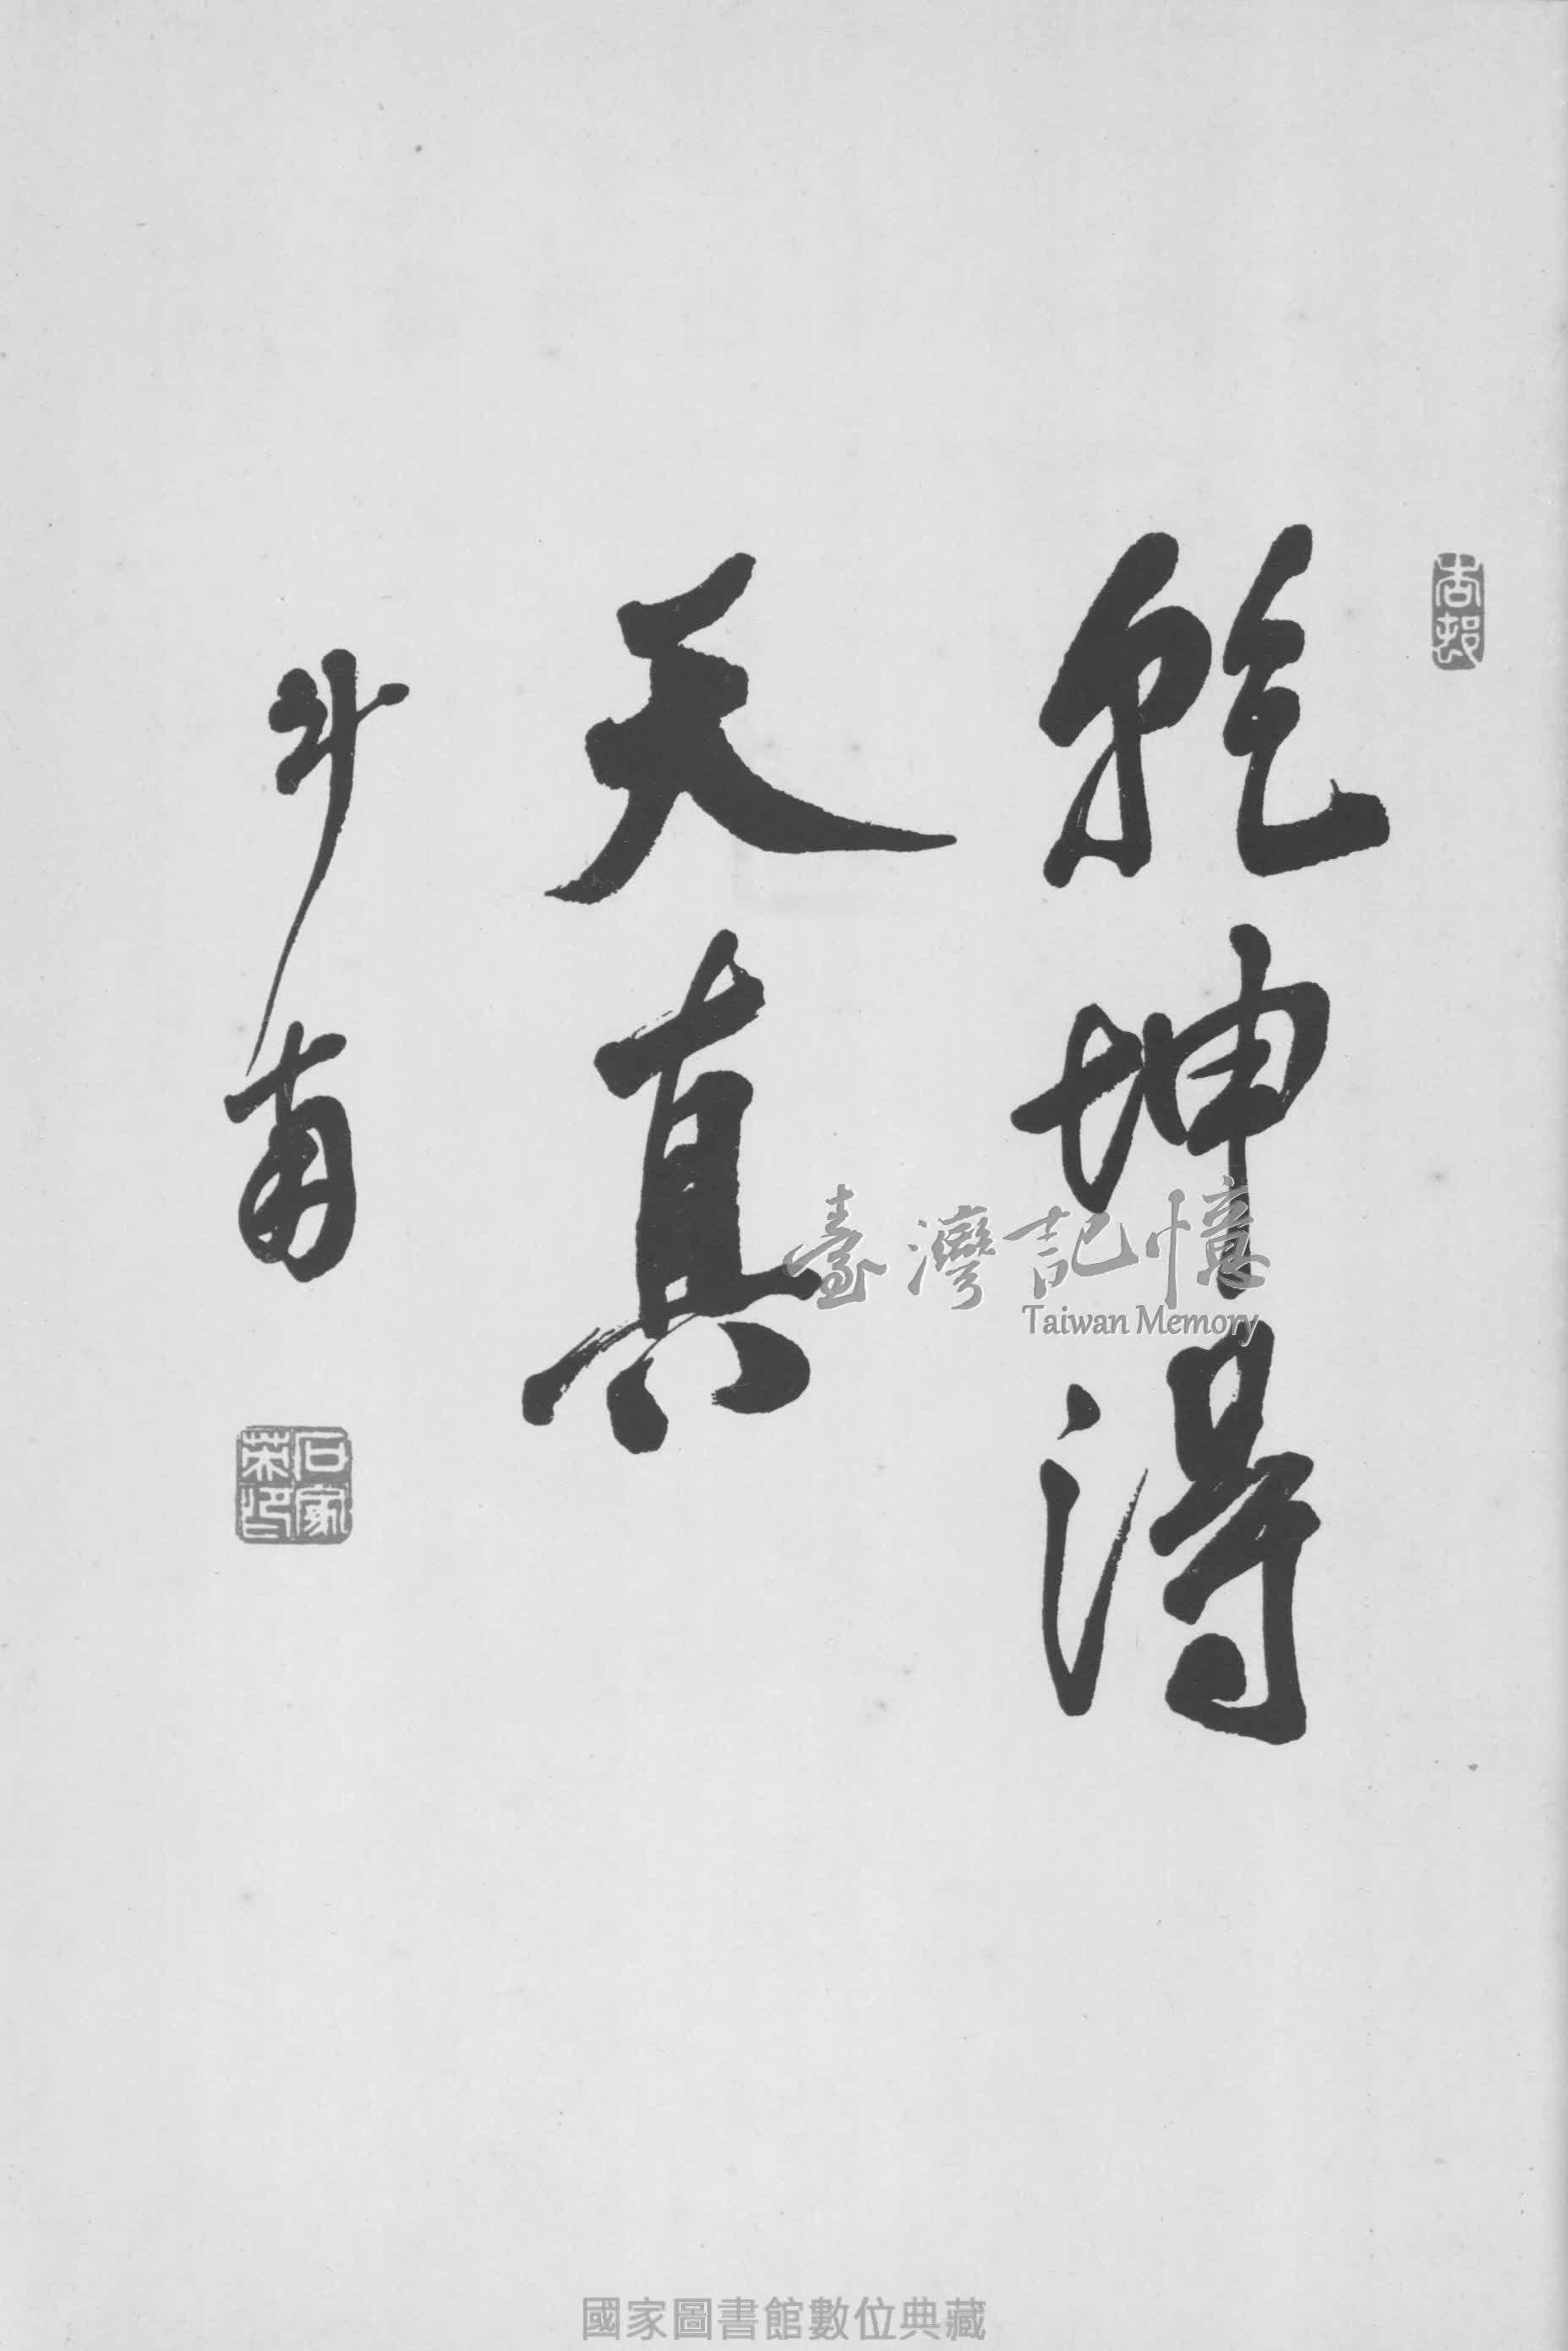 乾坤得
天真
斗南
石家
榮印
臺灣記憶
Taiwan Memory
國家圖書館數位典藏